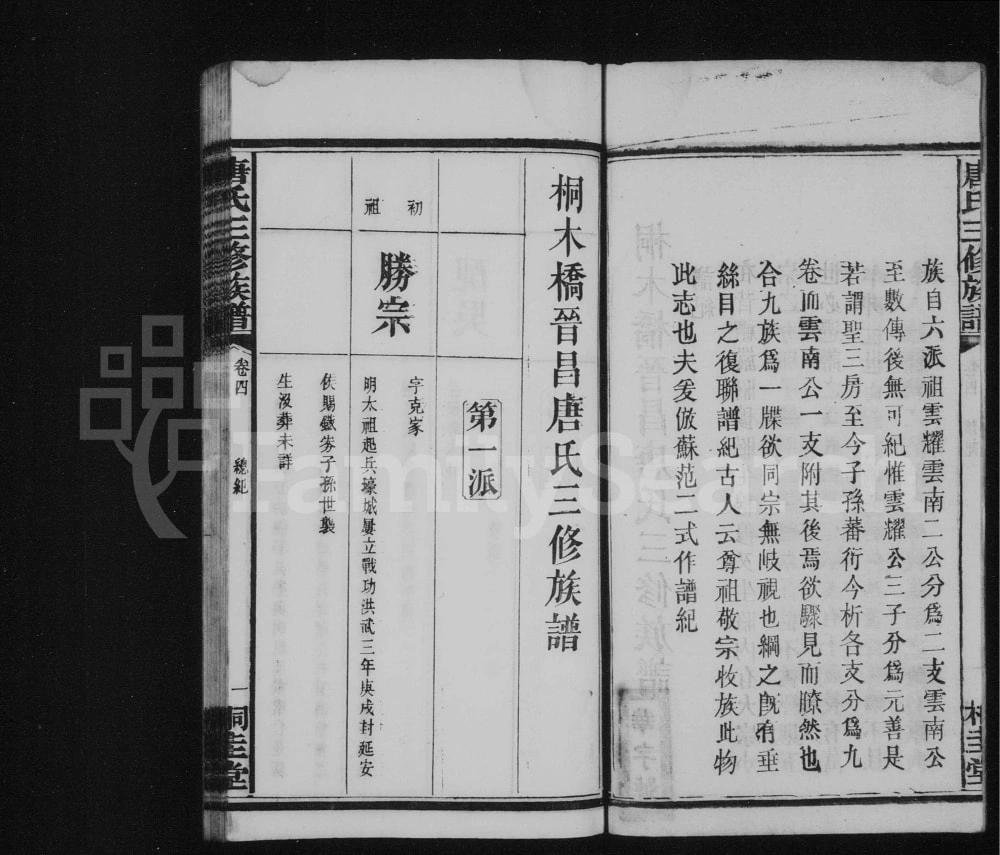 唐氏三修族譜
桂堂
族自六派祖雲耀雲南二公分爲二支雲南公
至數傳後無可紀惟雲耀公三子分爲元善是
若謂聖三房至今子孫蕃衍今析各支分爲九
卷而雲南公一支附其後焉欲驟見而瞭然也
合九族爲一牒欲同宗無岐視也綱之旣有垂
絲目之復聯譜紀古人云尊祖敬宗收族此物
此志也夫爰倣蘇范二式作譜紀
桐木橋晉昌唐氏三修族譜
第一派
初祖
勝宗
字克家
明太祖起兵壕城屢立戰功洪武三年庚戌封延安
侯賜鐵券子孫世襲
生沒葬未詳
唐氏三修族譜
卷四
總紀
一
桂堂
FamilySearch